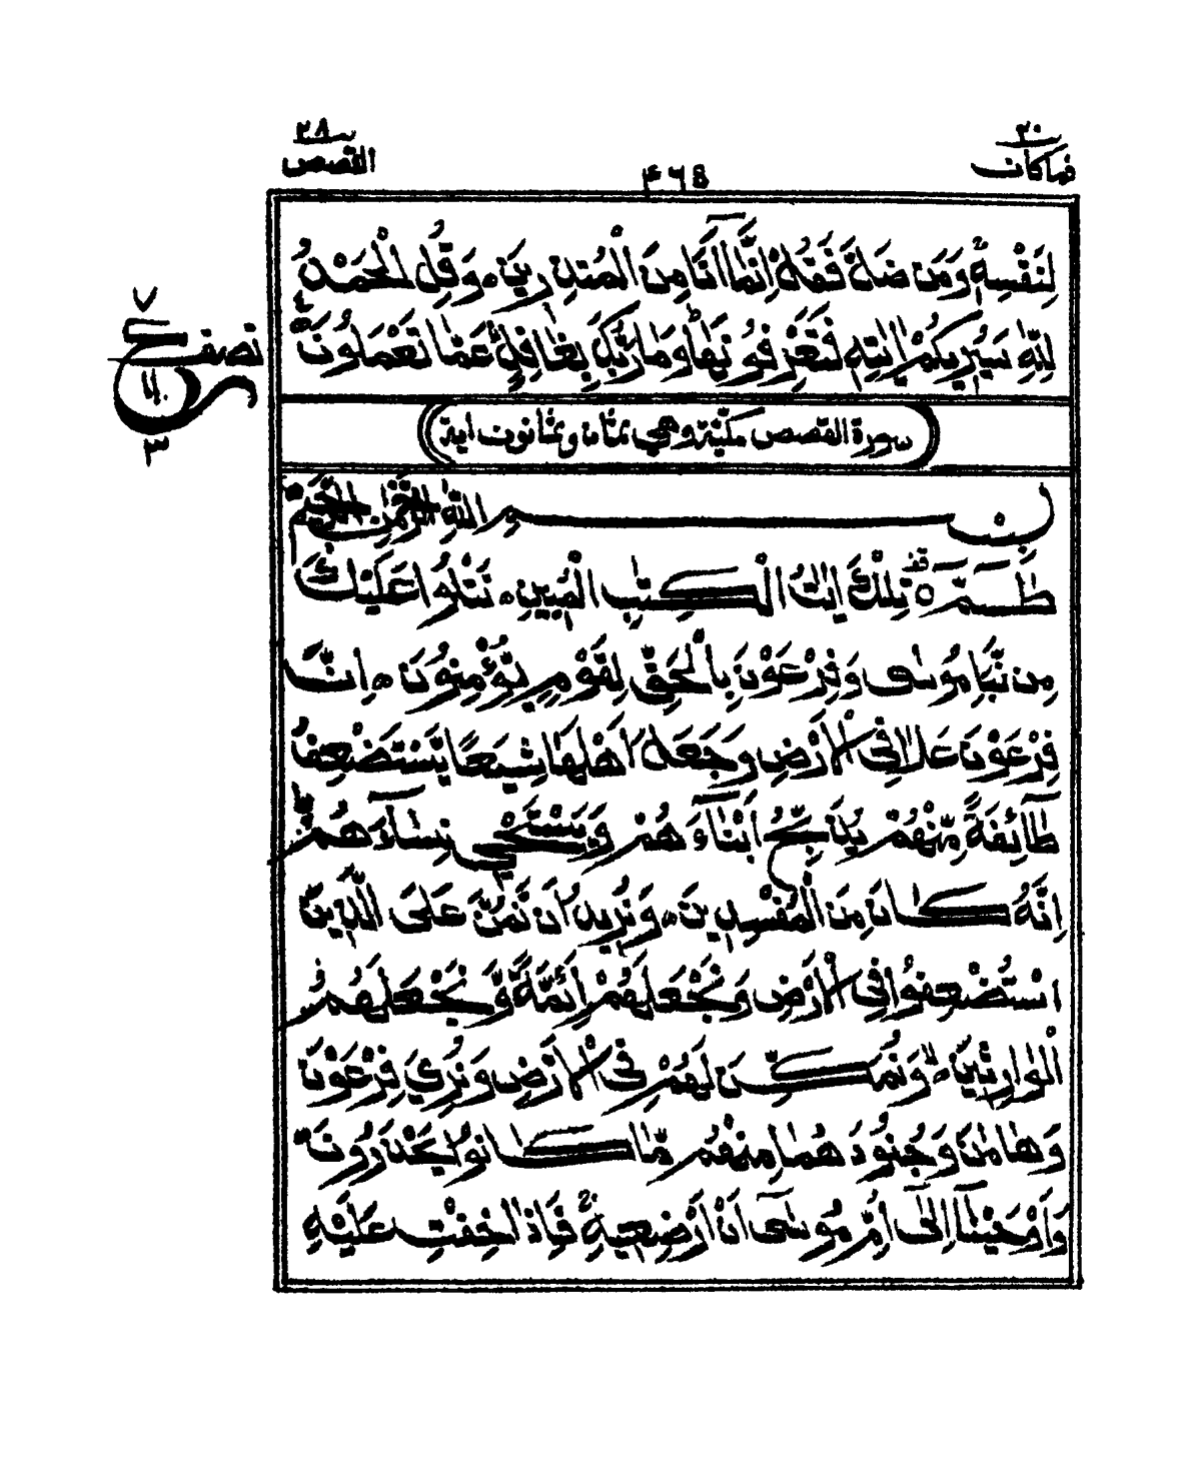 ٢٠
فما كان
٤٦٥
٢٨
القصص
لِنَفْسِهِ وَمَن ضَلَّ فَقُلْ إِنَّمَا أَنَا مِنَ الْمُنذِرِينَ ۝ وَقُلِ الْحَمْدُ
لِلّٰهِ سَيُرِيكُمْ اٰيٰتِهِ فَتَعْرِفُونَهَا وَمَا رَبُّكَ بِغَافِلٍ عَمَّا تَعْمَلُونَ
نصف
ع
٧
٣
سورة القصص مكية وهي ثمان وثمانون اية
بِسْمِ اللّٰهِ الرَّحْمٰنِ الرَّحِيمِ
طٰسٓمّٓ ۝ تِلْكَ اٰيٰتُ الْكِتٰبِ الْمُبِينِ ۝ نَتْلُوا عَلَيْكَ
مِن نَّبَإِ مُوسٰى وَفِرْعَوْنَ بِالْحَقِّ لِقَوْمٍ يُّؤْمِنُونَ ۝ إِنَّ
فِرْعَوْنَ عَلَا فِي الْأَرْضِ وَجَعَلَ أَهْلَهَا شِيَعًا يَّسْتَضْعِفُ
طَآئِفَةً مِّنْهُمْ يُذَبِّحُ أَبْنَآءَهُمْ وَيَسْتَحْيِي نِسَآءَهُمْ
إِنَّهُ كَانَ مِنَ الْمُفْسِدِينَ ۝ وَنُرِيدُ أَن نَّمُنَّ عَلَى الَّذِينَ
اسْتُضْعِفُوا فِي الْأَرْضِ وَنَجْعَلَهُمْ أَئِمَّةً وَّنَجْعَلَهُمُ
الْوَارِثِينَ ۝ وَنُمَكِّنَ لَهُمْ فِي الْأَرْضِ وَنُرِيَ فِرْعَوْنَ
وَهَامَانَ وَجُنُودَهُمَا مِنْهُم مَّا كَانُوا يَحْذَرُونَ
وَأَوْحَيْنَآ إِلٰٓى أُمِّ مُوسٰٓى أَنْ أَرْضِعِيهِ فَإِذَا خِفْتِ عَلَيْهِ